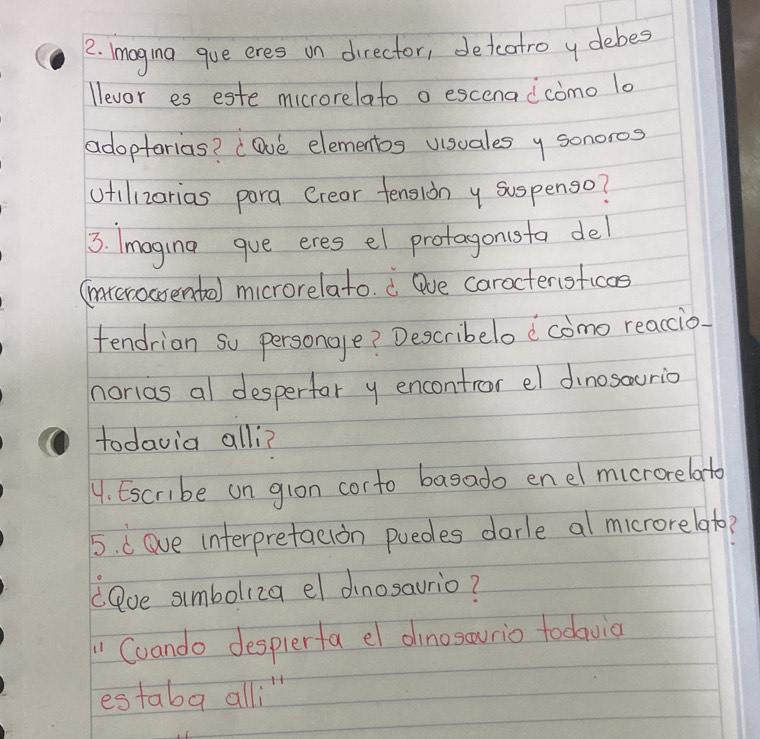 2. Imagina que eres un director, de teatro y debes
llevar es este microrelato a escena ¿còmo lo
adoptarias? ¿Què elementos visuales y sonoros
utilizarias para crear tensiòn y suspenso?
3. Imagina que eres el protagonista del
(microcuento) microrelato. ¿ Que caracteristicas
tendrian su personaje? Describelo ¿ còmo reaccio-
narias al despertar y encontrar el dinosaurio
todavia alli?
4. Escribe un gion corto basado en el microrelato
5. ¿ Que interpretaciòn puedes darle al microrelato?
¿Que simboliza el dinosaurio?
" Cuando despierta el dinosaurio todavia
estaba alli"